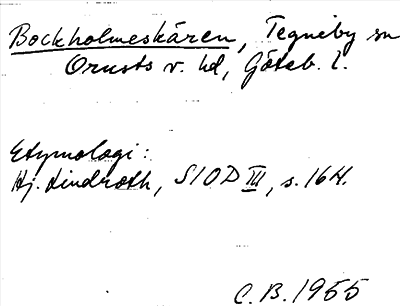 Bockholmeskären, Tegneby sn
Orusts v. hd, Göteb. l.
Etymologi:
Hj. Lindroth, SIOD III, s. 164.
C.B. 1955